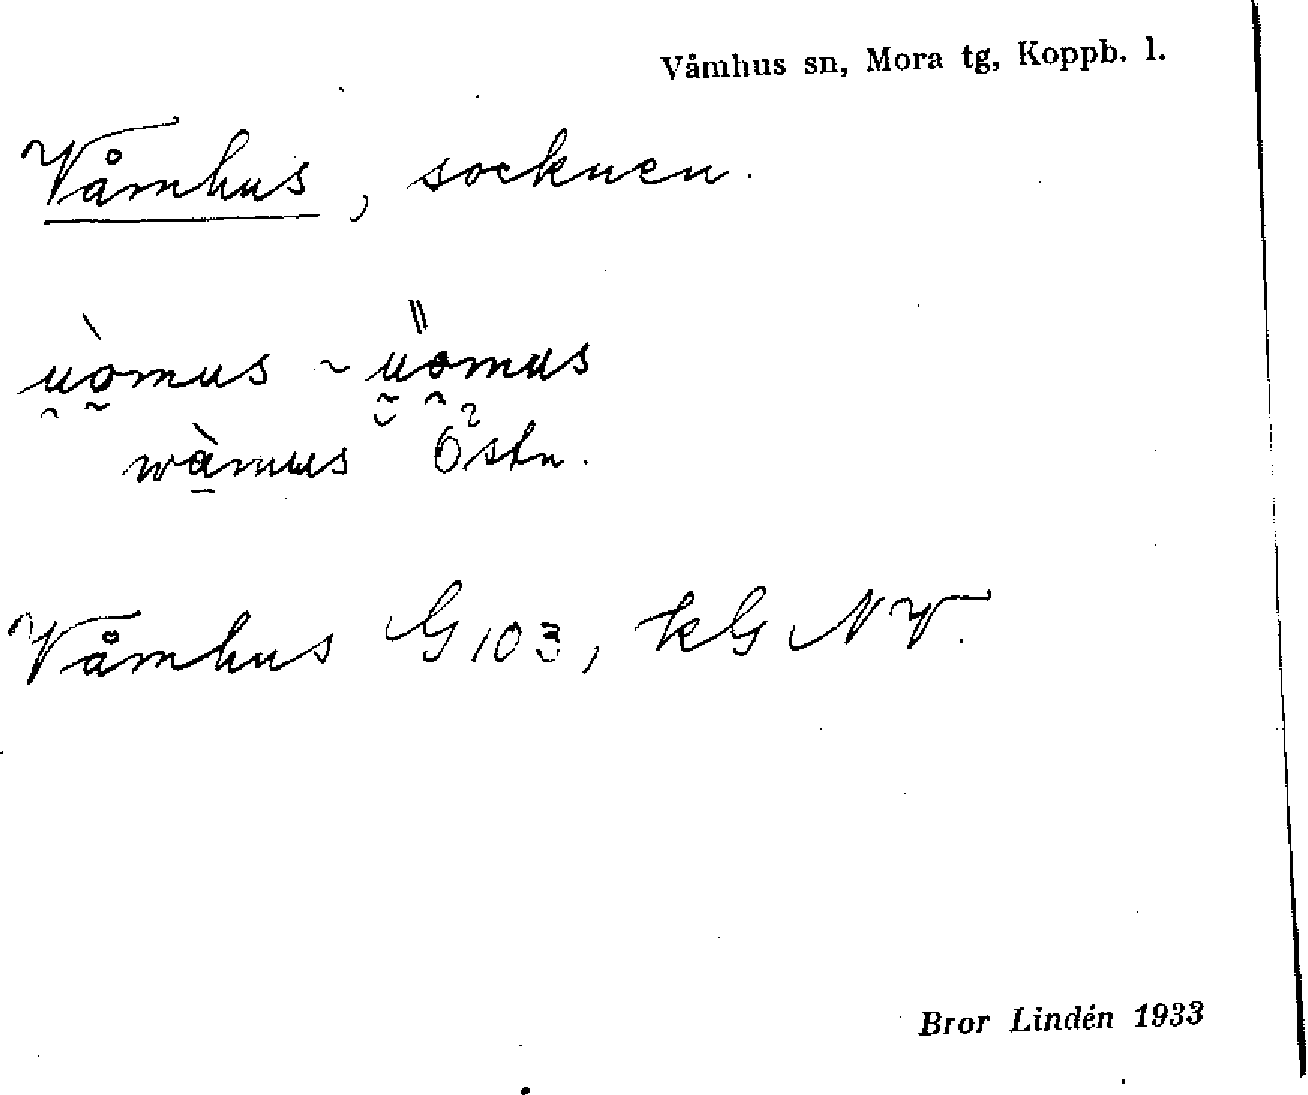 Våmhus sn, Mora tg, Koppb. l.
Våmhus, socknen.
u̯òmus ~ u̯òmus
wàmus Östn.
Våmhus G 103, kG NV.
Bror Lindén 1933